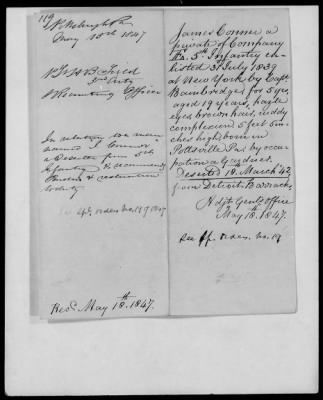 119
Pittsburgh Pa
May 13th 1847
Recruiting Officer
In relation to a man
named J. Connor
a Deserter from 5th
Infantry & recommends
Pardon & restoration
to duty
See Sp. orders No. 19 / 1847
Recd. May 18th. 1847.
James Conner a
private of Company
5th Infantry en-
listed 31 July 1839
at New York by Capt
Bainbridge for 5 yrs,
aged 19 years, hazle
eyes, brown hair, ruddy
complexion 5 feet 6 in-
ches high, born in
Pottsville Pa. by occu-
pation a
Deserted 18. March '42
from Detroit Barracks
Adjt. Genl's Office
May 18th. 1847.
See Sp. orders. No. 19